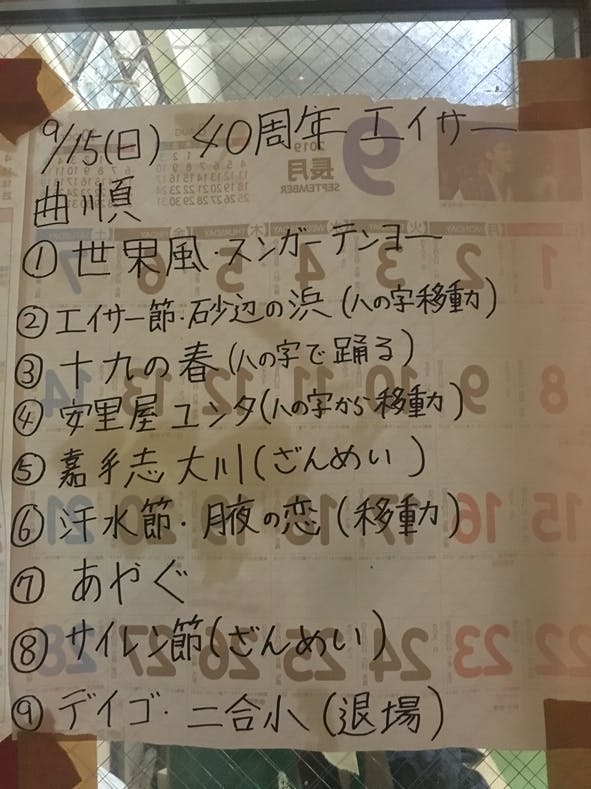 9/15(日) 40周年エイサー
曲順
① 世果風・スンガーテンヨー
② エイサー節・砂辺の浜(ハの字移動)
③ 十九の春(ハの字で踊る)
④ 安里屋ユンタ(ハの字から移動)
⑤ 嘉手志大川(ざんめい)
⑥ 汗水節・月夜の恋(移動)
⑦ あやぐ
⑧ サイレン節(ざんめい)
⑨ デイゴ・二合小(退場)
2019
9
長月
SEPTEMBER